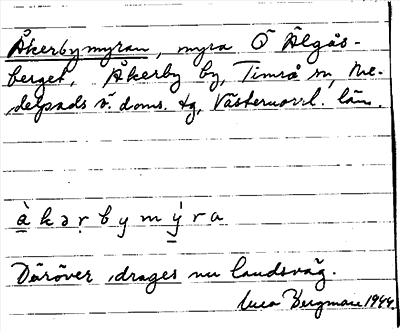 Åkerbymyran, myra Ö Älgås-
berget, Åkerby by, Timrå sn, Me-
delpads ö. doms. tg, Västernorrl. län.
à k ə ṛ b y m ý r a
Däröver drages nu landsväg.
Bergman 1944.